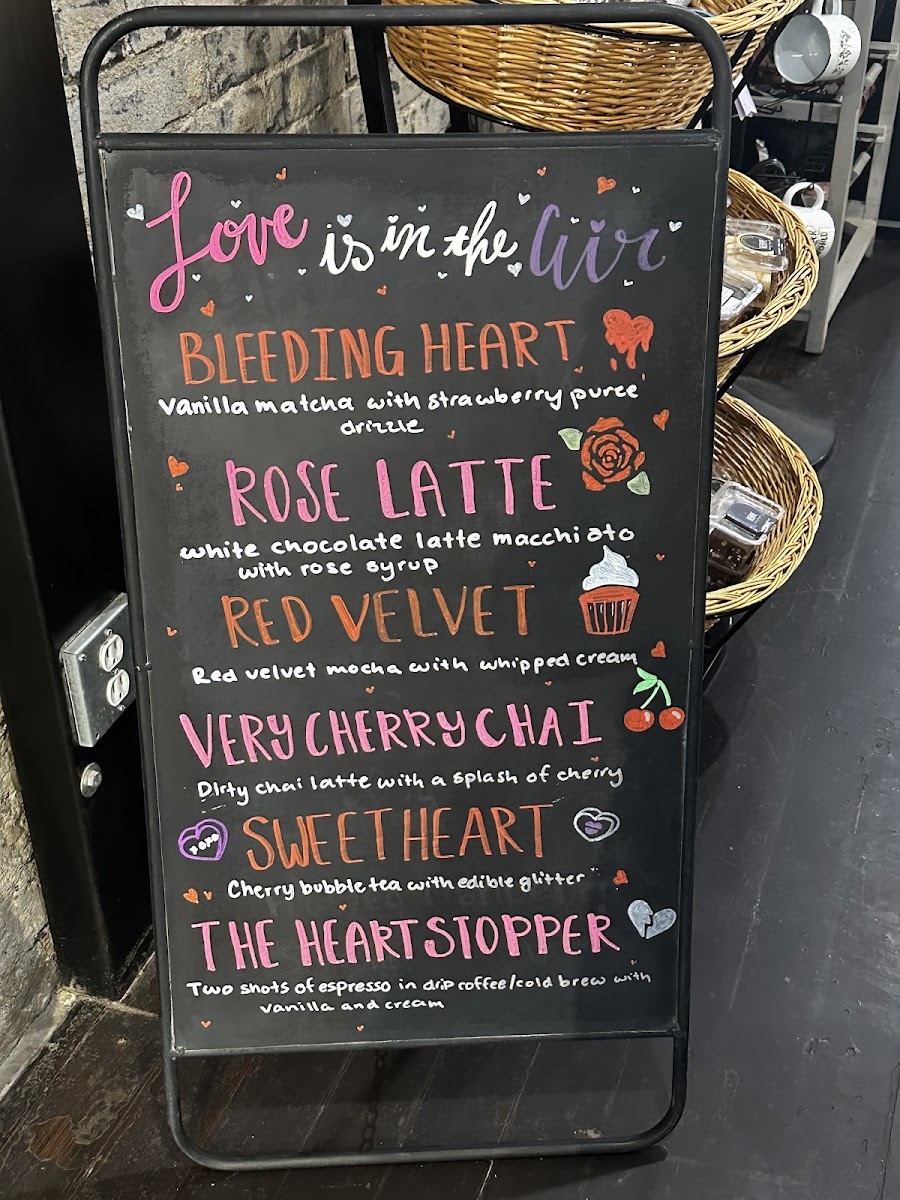 Love is in the Air
BLEEDING HEART
Vanilla matcha with strawberry puree
drizzle
ROSE LATTE
white chocolate latte macchiato
with rose syrup
RED VELVET
Red velvet mocha with whipped cream
VERY CHERRY CHAI
Dirty chai latte with a splash of cherry
SWEETHEART
Cherry bubble tea with edible glitter
THE HEARTSTOPPER
Two shots of espresso in drip coffee/cold brew with
vanilla and cream